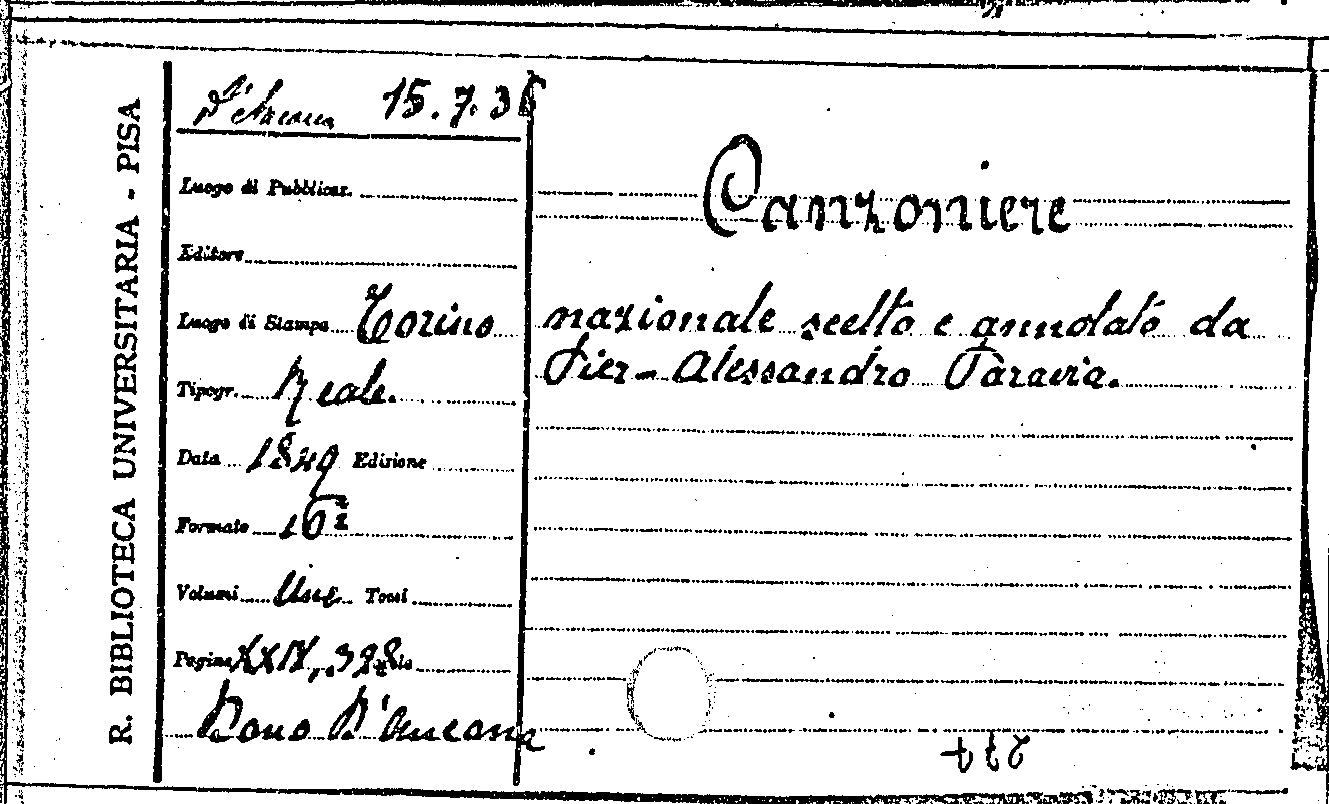 R. BIBLIOTECA UNIVERSITARIA - PISA
D'Ancona 15.7.36
Luogo di Pubblicaz.
Editore
Luogo di Stampa Torino
Tipogr. Reale.
Data 1849 Edizione
Formato 16º
Volumi Uno Tomi
Pagine XXIV, 398
Dono D'Ancona
Canzoniere
nazionale scelto e annotato da
Pier-Alessandro Paravia.